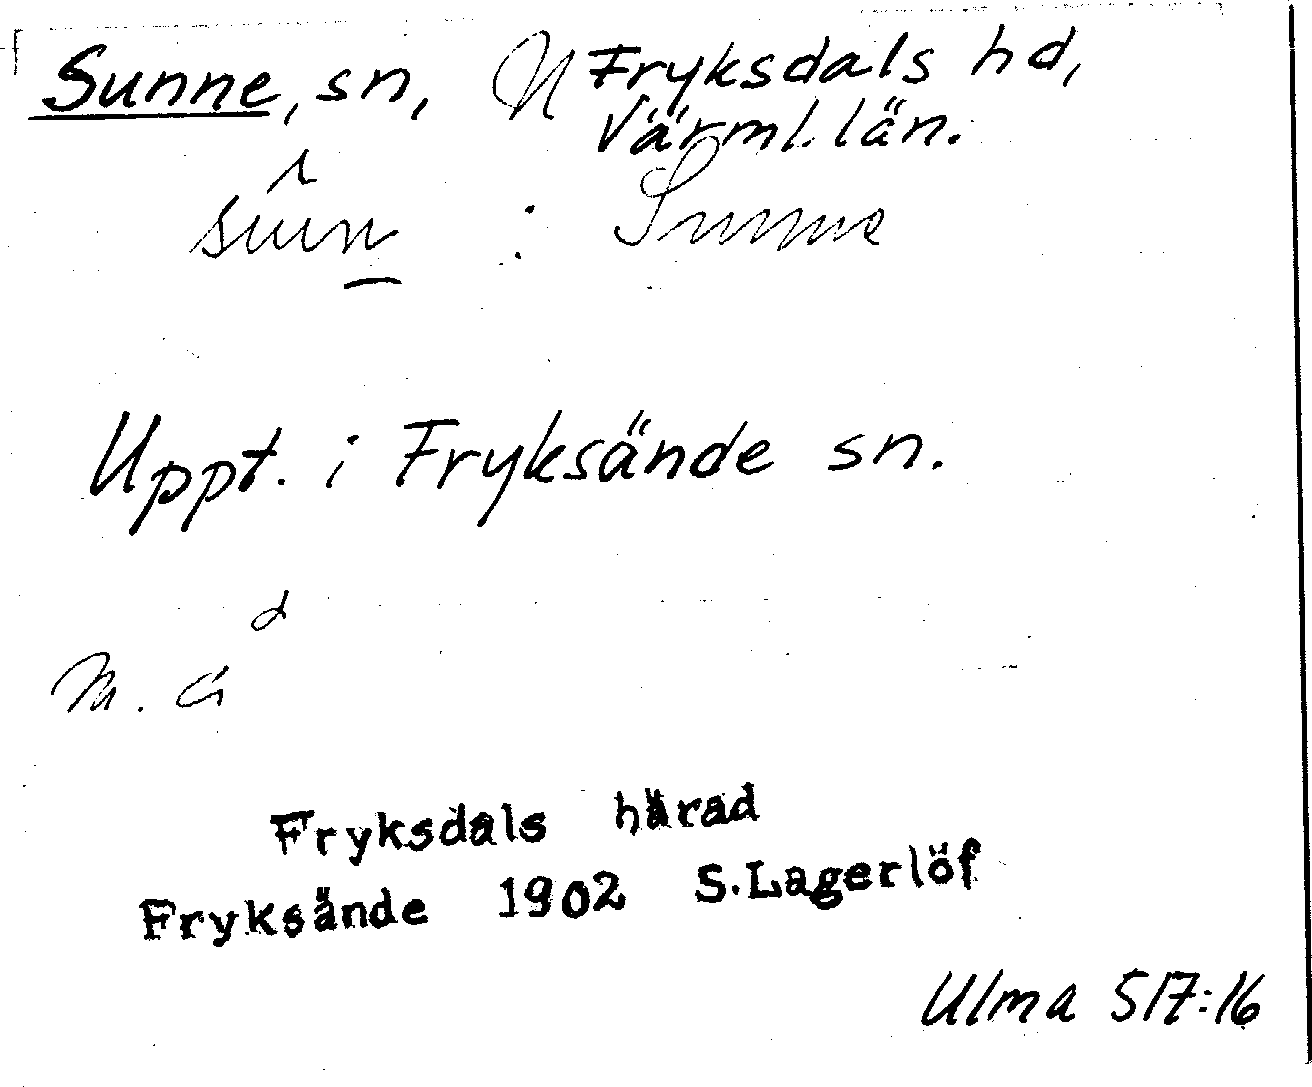 Sunne, sn, Fryksdals hd,
Värml. län.
: Sunne
Uppt. i Fryksände sn.
Fryksdals härad
Fryksände 1902 S.Lagerlöf
Ulma 517:16